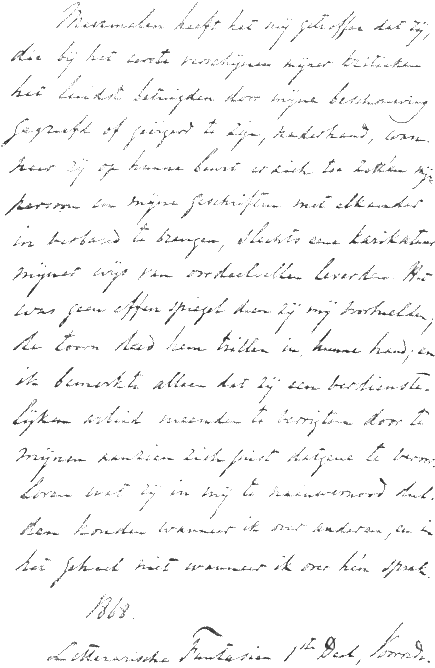 Meermalen heeft het mij getroffen dat zij,
die bij het eerste verschijnen mijner kritieken
het luidst betuigden door mijne beschouwing
gegriefd of geërgerd te zijn, naderhand, wan-
neer zij op hunne beurt er zich toe zetten mijn
persoon en mijne geschriften met elkander
in verband te brengen, slechts eene karikatuur
mijner wijs van oordeelvellen leverden. Het
was geen effen spiegel dien zij mij voorhielden;
de toorn deed hem trillen in hunne hand; en
ik bemerkte alleen dat zij een verdienste-
lijken arbeid meenden te verrigten door te
mijnen aanzien zich juist datgene te veroor-
loven wat zij in mij te naauwernood dul-
den konden wanneer ik over anderen, en in
het geheel niet wanneer ik over hén sprak.
1868.
Litterarische Fantasien 1ste Deel, Voorrede.